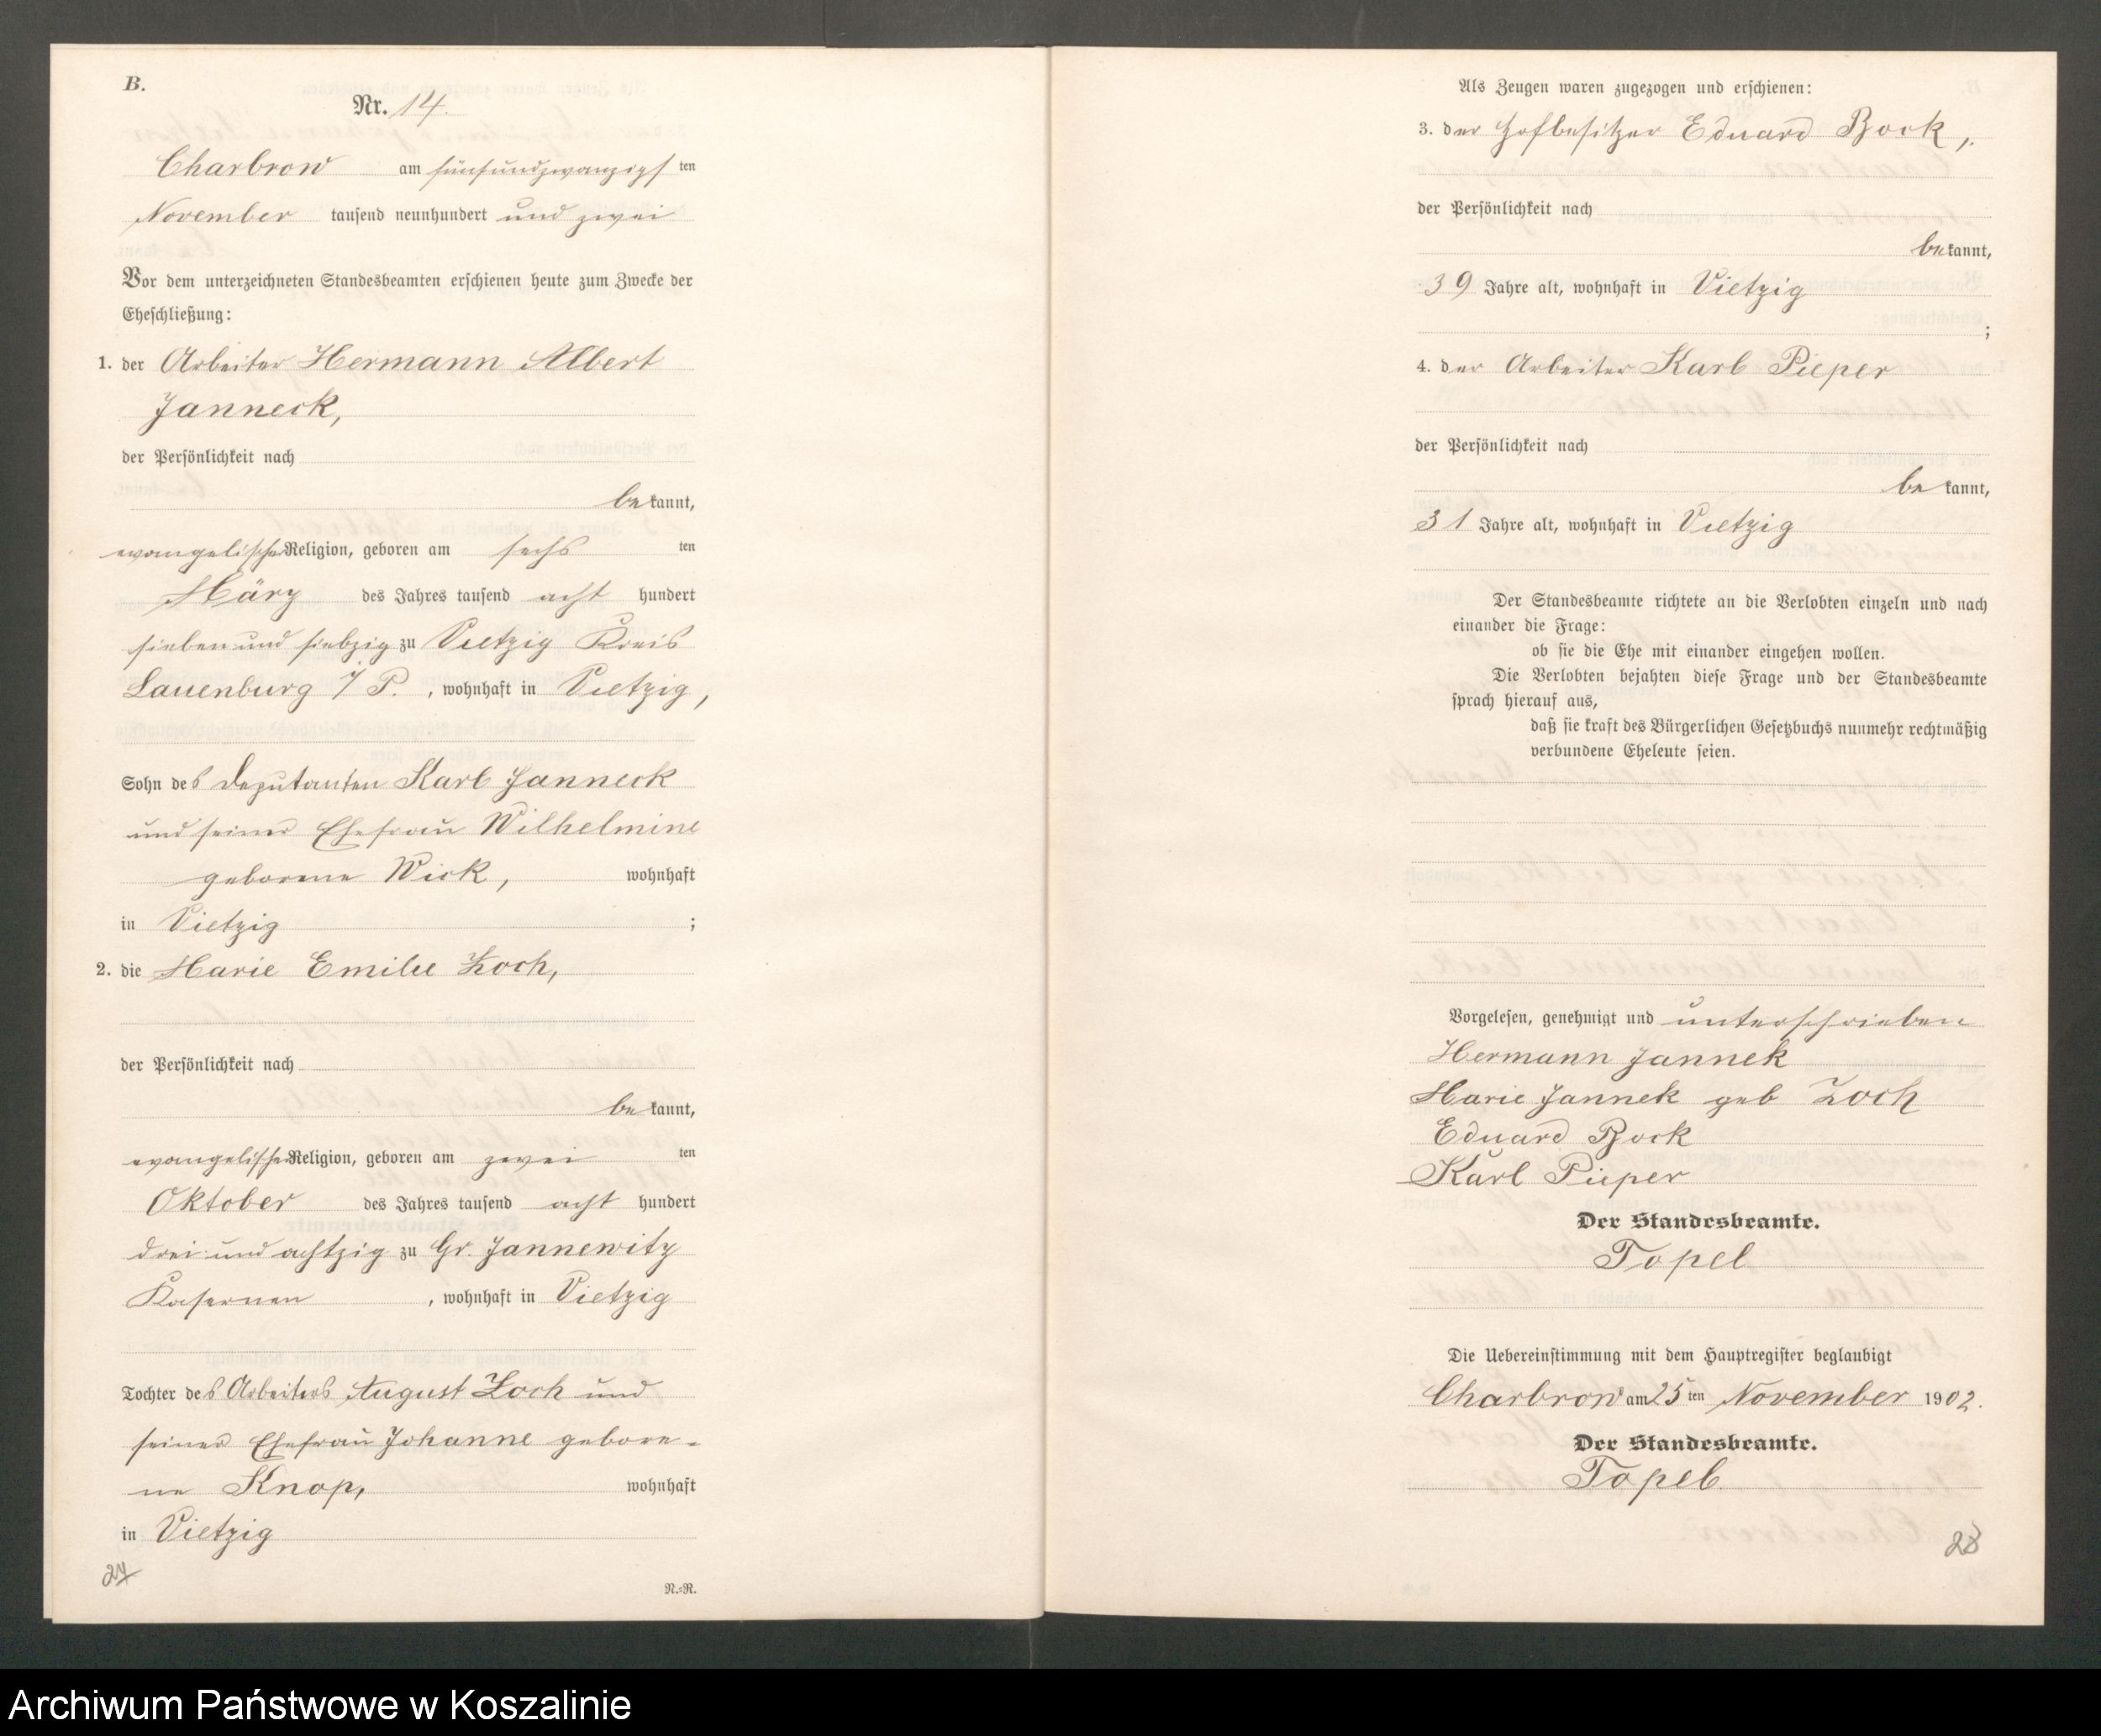 B.
Nr. 14.
Charbrow am fünfundzwanzigsten
November tausend neunhundert und zwei
Vor dem unterzeichneten Standesbeamten erschienen heute zum Zwecke der
Eheschließung:
1. der Arbeiter Hermann Albert
Janneck,
der Persönlichkeit nach
bekannt,
evangelischer Religion, geboren am sechsten
März des Jahres tausend acht hundert
sieben und siebzig zu Vietzig Kreis
Lauenburg i/P., wohnhaft in Vietzig,
Sohn des Deputanten Karl Janneck
und seiner Ehefrau Wilhelmine
geborene Wick, wohnhaft
in Vietzig ;
2. die Marie Emilie Zoch,
der Persönlichkeit nach
bekannt,
evangelischer Religion, geboren am zweiten
Oktober des Jahres tausend acht hundert
drei und achtzig zu Gr. Jannewitz
Kasernen, wohnhaft in Vietzig
Tochter des Arbeiters August Zoch und
seiner Ehefrau Johanne gebore-
ne Knop, wohnhaft
in Vietzig
27
N.-R.
Als Zeugen waren zugezogen und erschienen:
3. der Hofbesitzer Eduard Bock,
der Persönlichkeit nach
bekannt,
39 Jahre alt, wohnhaft in Vietzig
;
4. der Arbeiter Karl Pieper
der Persönlichkeit nach
bekannt,
31 Jahre alt, wohnhaft in Vietzig
Der Standesbeamte richtete an die Verlobten einzeln und nach
einander die Frage:
ob sie die Ehe mit einander eingehen wollen.
Die Verlobten bejahten diese Frage und der Standesbeamte
sprach hierauf aus,
daß sie kraft des Bürgerlichen Gesetzbuchs nunmehr rechtmäßig
verbundene Eheleute seien.
Vorgelesen, genehmigt und unterschrieben
Hermann Jannek
Marie Jannek geb Zoch
Eduard Bock
Karl Pieper
Der Standesbeamte.
Topel
Die Uebereinstimmung mit dem Hauptregister beglaubigt
Charbrow am 25ten November 1902.
Der Standesbeamte.
Topel
28
Archiwum Państwowe w Koszalinie